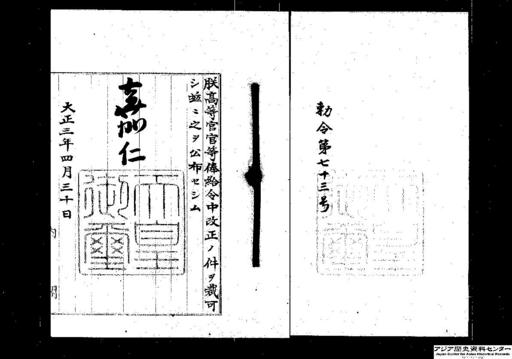 勅令第七十三号
朕高等官官等俸給令中改正ノ件ヲ裁可
シ茲ニ之ヲ公布セシム
嘉仁
天皇
御璽
大正三年四月三十日
内閣
アジア歴史資料センター
Japan Center for Asian Historical Records